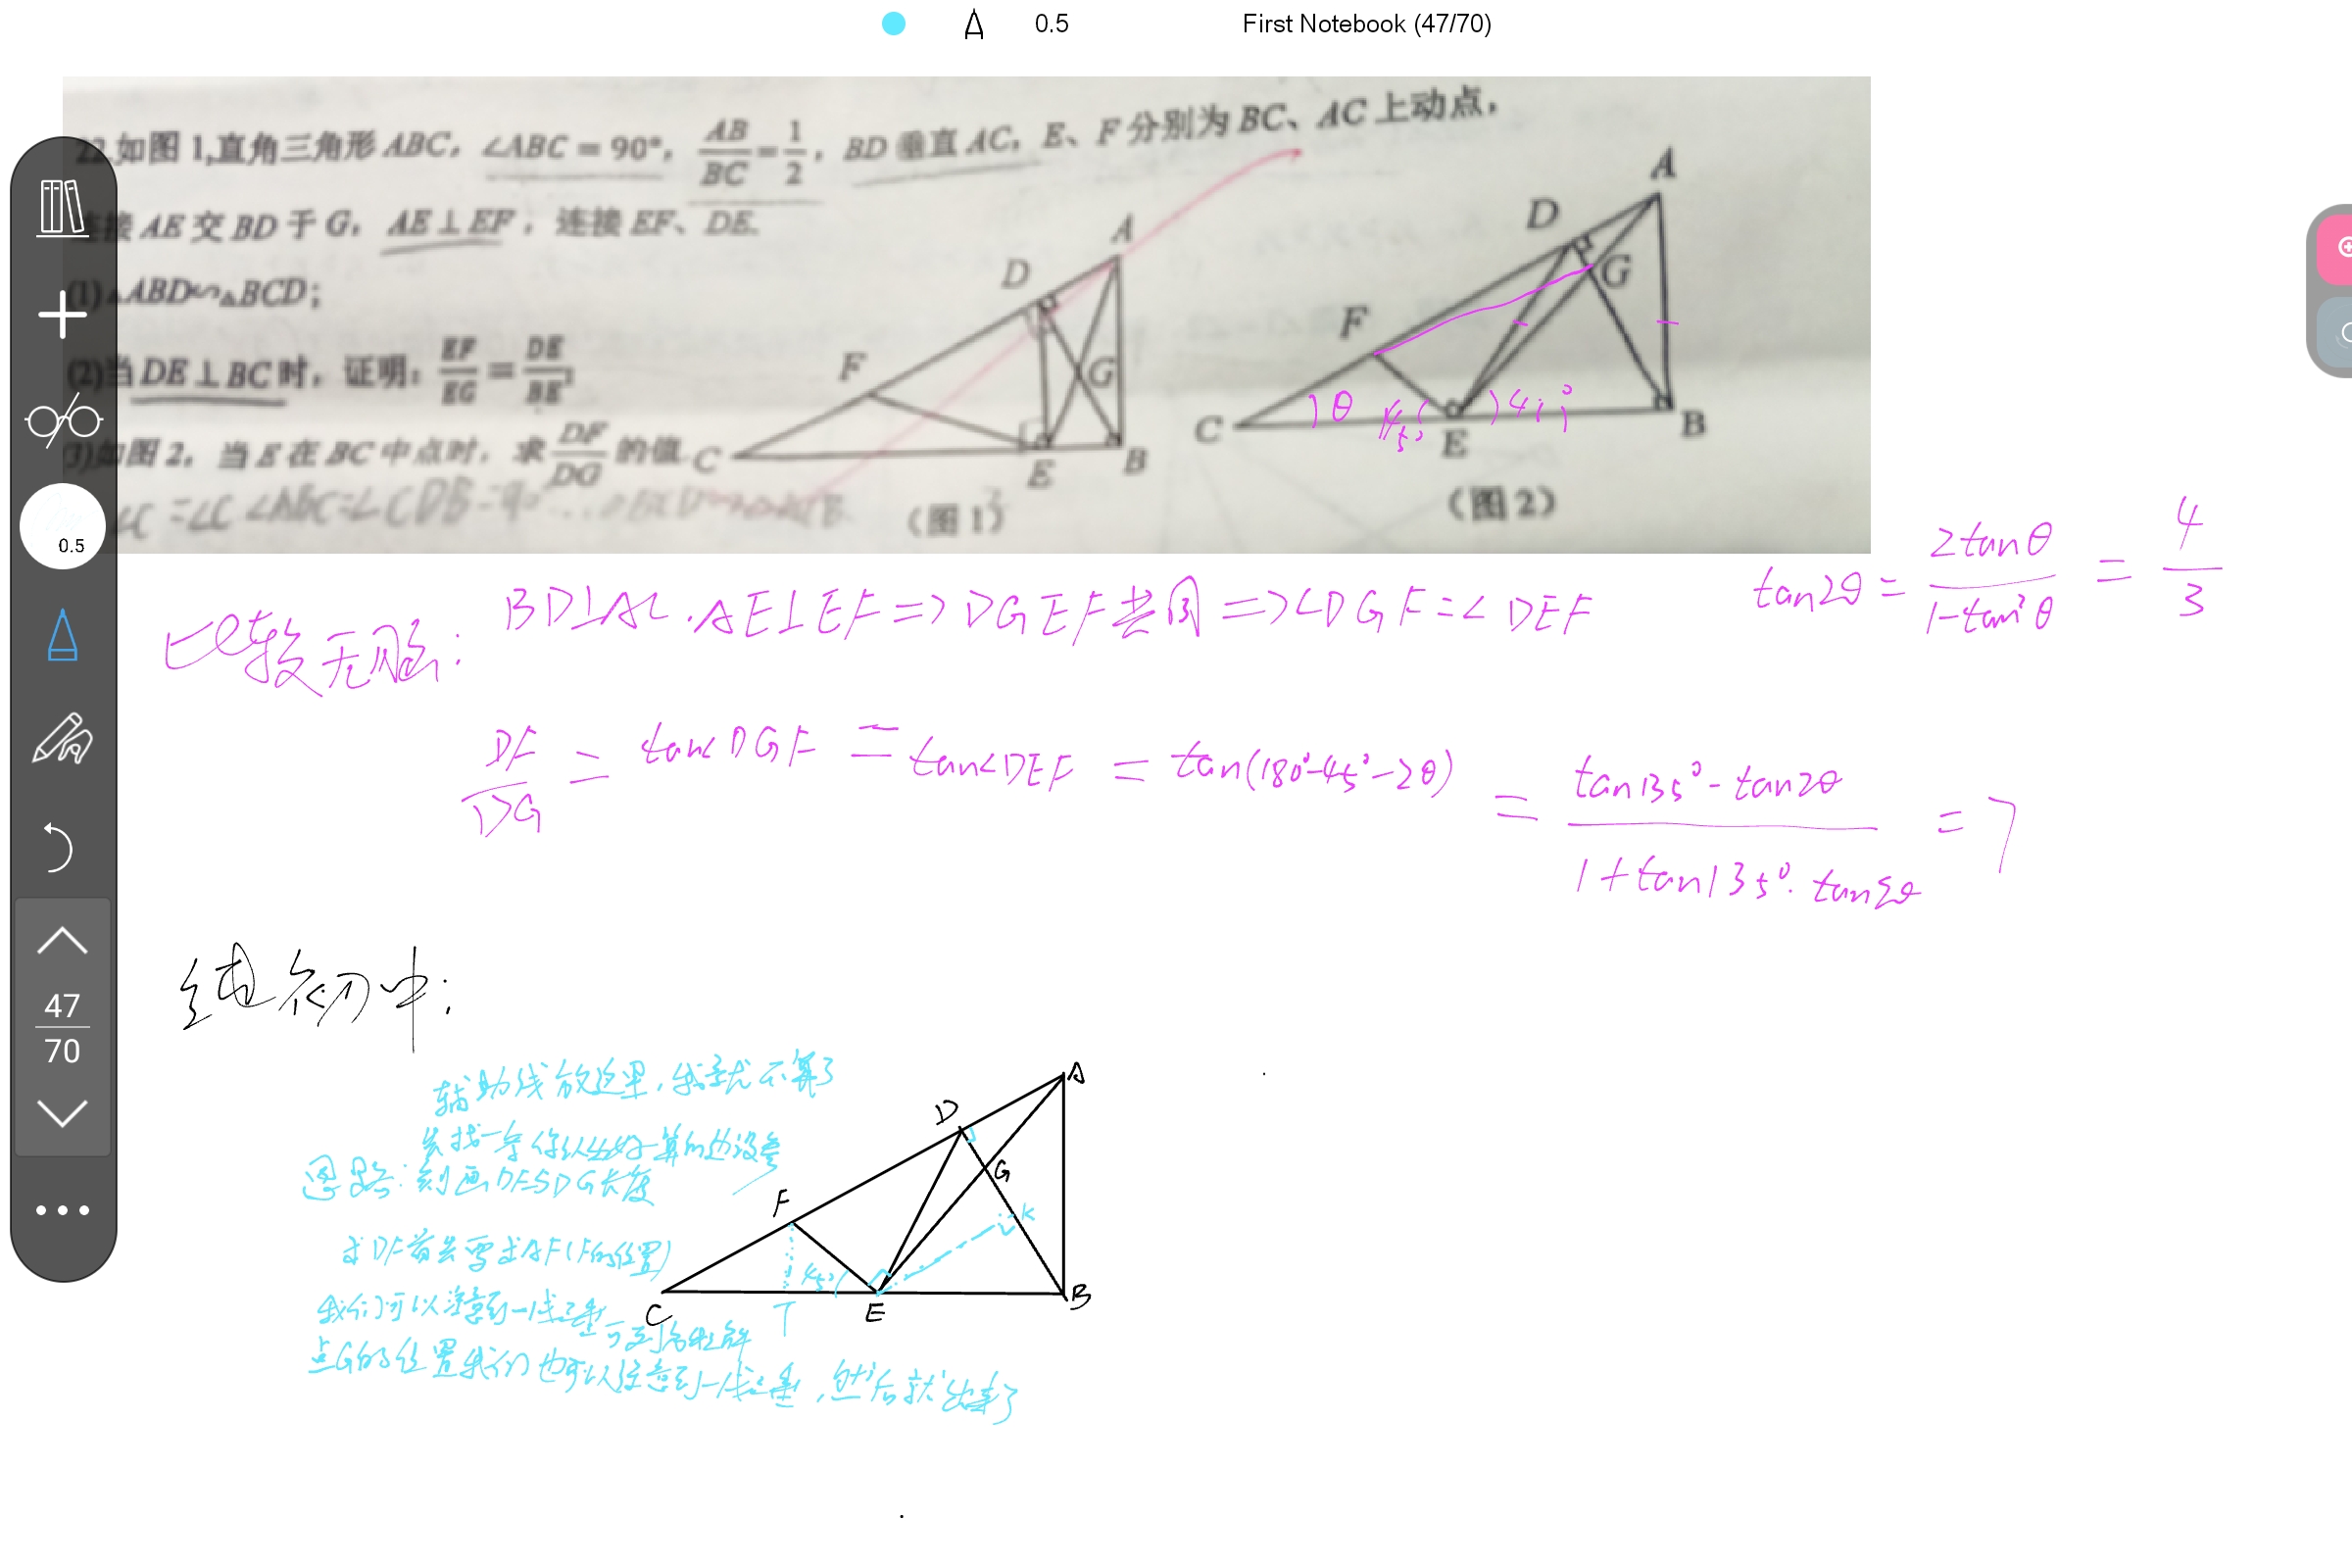 0.5 First Notebook (47/70)
22.如图1,直角三角形ABC，∠ABC＝90°，AB/BC=1/2，BD垂直AC，E、F分别为BC、AC上动点，
连接AE交BD于G，AE⊥EF，连接EF、DE.
(1)△ABD∽△BCD；
(2)当DE⊥BC时，证明：EF/EG=DE/BE;
(3)如图2，当E在BC中点时，求DF/DG的值
∠C=∠C ∠ABC=∠CDB=90°
A
D
F
G
C
E
B
（图1）
A
D
G
F
θ
45°
45°
C
E
B
（图2）
0.5
比较无脑：
BD⊥AC.AE⊥EF=>DGEF共圆=>∠DGF=∠DEF
tan2θ=2tanθ/1-tan²θ=4/3
DF/DG=tan∠DGF=tan∠DEF=tan(180°-45°-2θ)=tan135°-tan2θ/1+tan135°.tan2θ=7
纯初中：
47
70
辅助线放这里，我就不算了
先找一条你认为好算的边设参
思路：刻画DF与DG长度
求DF首先需求AF(F的位置)
我们可以注意到一线三垂
点G的位置我们也可以注意到一线三垂，然后就出来了
A
D
G
F
K
45°
C
T
E
B